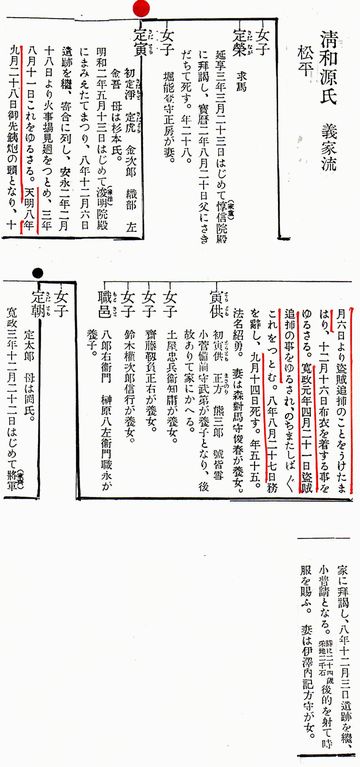 清和源氏 義家流
松平
女子
定榮
求馬
延享三年三月二十三日はじめて惇信院殿(家重)
に拜謁し、寶暦二年八月二十日父にさき
だちて死す。年二十八。
女子
堀能登守正房が妻。
定寅
初定淳 定虎 金次郎 織部 左
金吾 母は杉本氏。
明和二年五月十三日はじめて浚明院殿(家治)
にまみえたてまつり、八年十二月六日
遺跡を繼、寄合に列し、安永二年二月
十八日より火事場見廻をつとめ、三年
八月十一日これをゆるさる。天明八年
九月二十八日御先鐵炮の頭となり、十
月六日より盜賊追捕のことをうけたま
はり、十二月十六日布衣を着する事を
ゆるさる。寛政元年四月二十一日盜賊
追捕の事をゆるされ、のちまたしばく
これをつとむ。八年八月二十七日務
を辭し、九月十四日死す。年五十五。
法名紹勇。妻は森對馬守俊春が養女。
寅供
初寅次 正方 熊三郎 號皆雲
小菅備前守武第が養子となり、後
故ありて家にかへる。
女子
土屋忠兵衞知庸が養女。
女子
齋藤靱負正右が養女。
女子
鈴木權次郎信行が養女。
職邑
八郎右衞門 榊原八左衞門職永が
養子。
女子
定朝
定太郎 母は岡氏。
寛政三年十二月二十二日はじめて將軍(家齊)
家に拜謁し、八年十二月三日遺跡を繼、
小普請となる。時に二十四歳 采地二千石 後的を射て時
服を賜ふ。妻は伊澤内記方守が女。